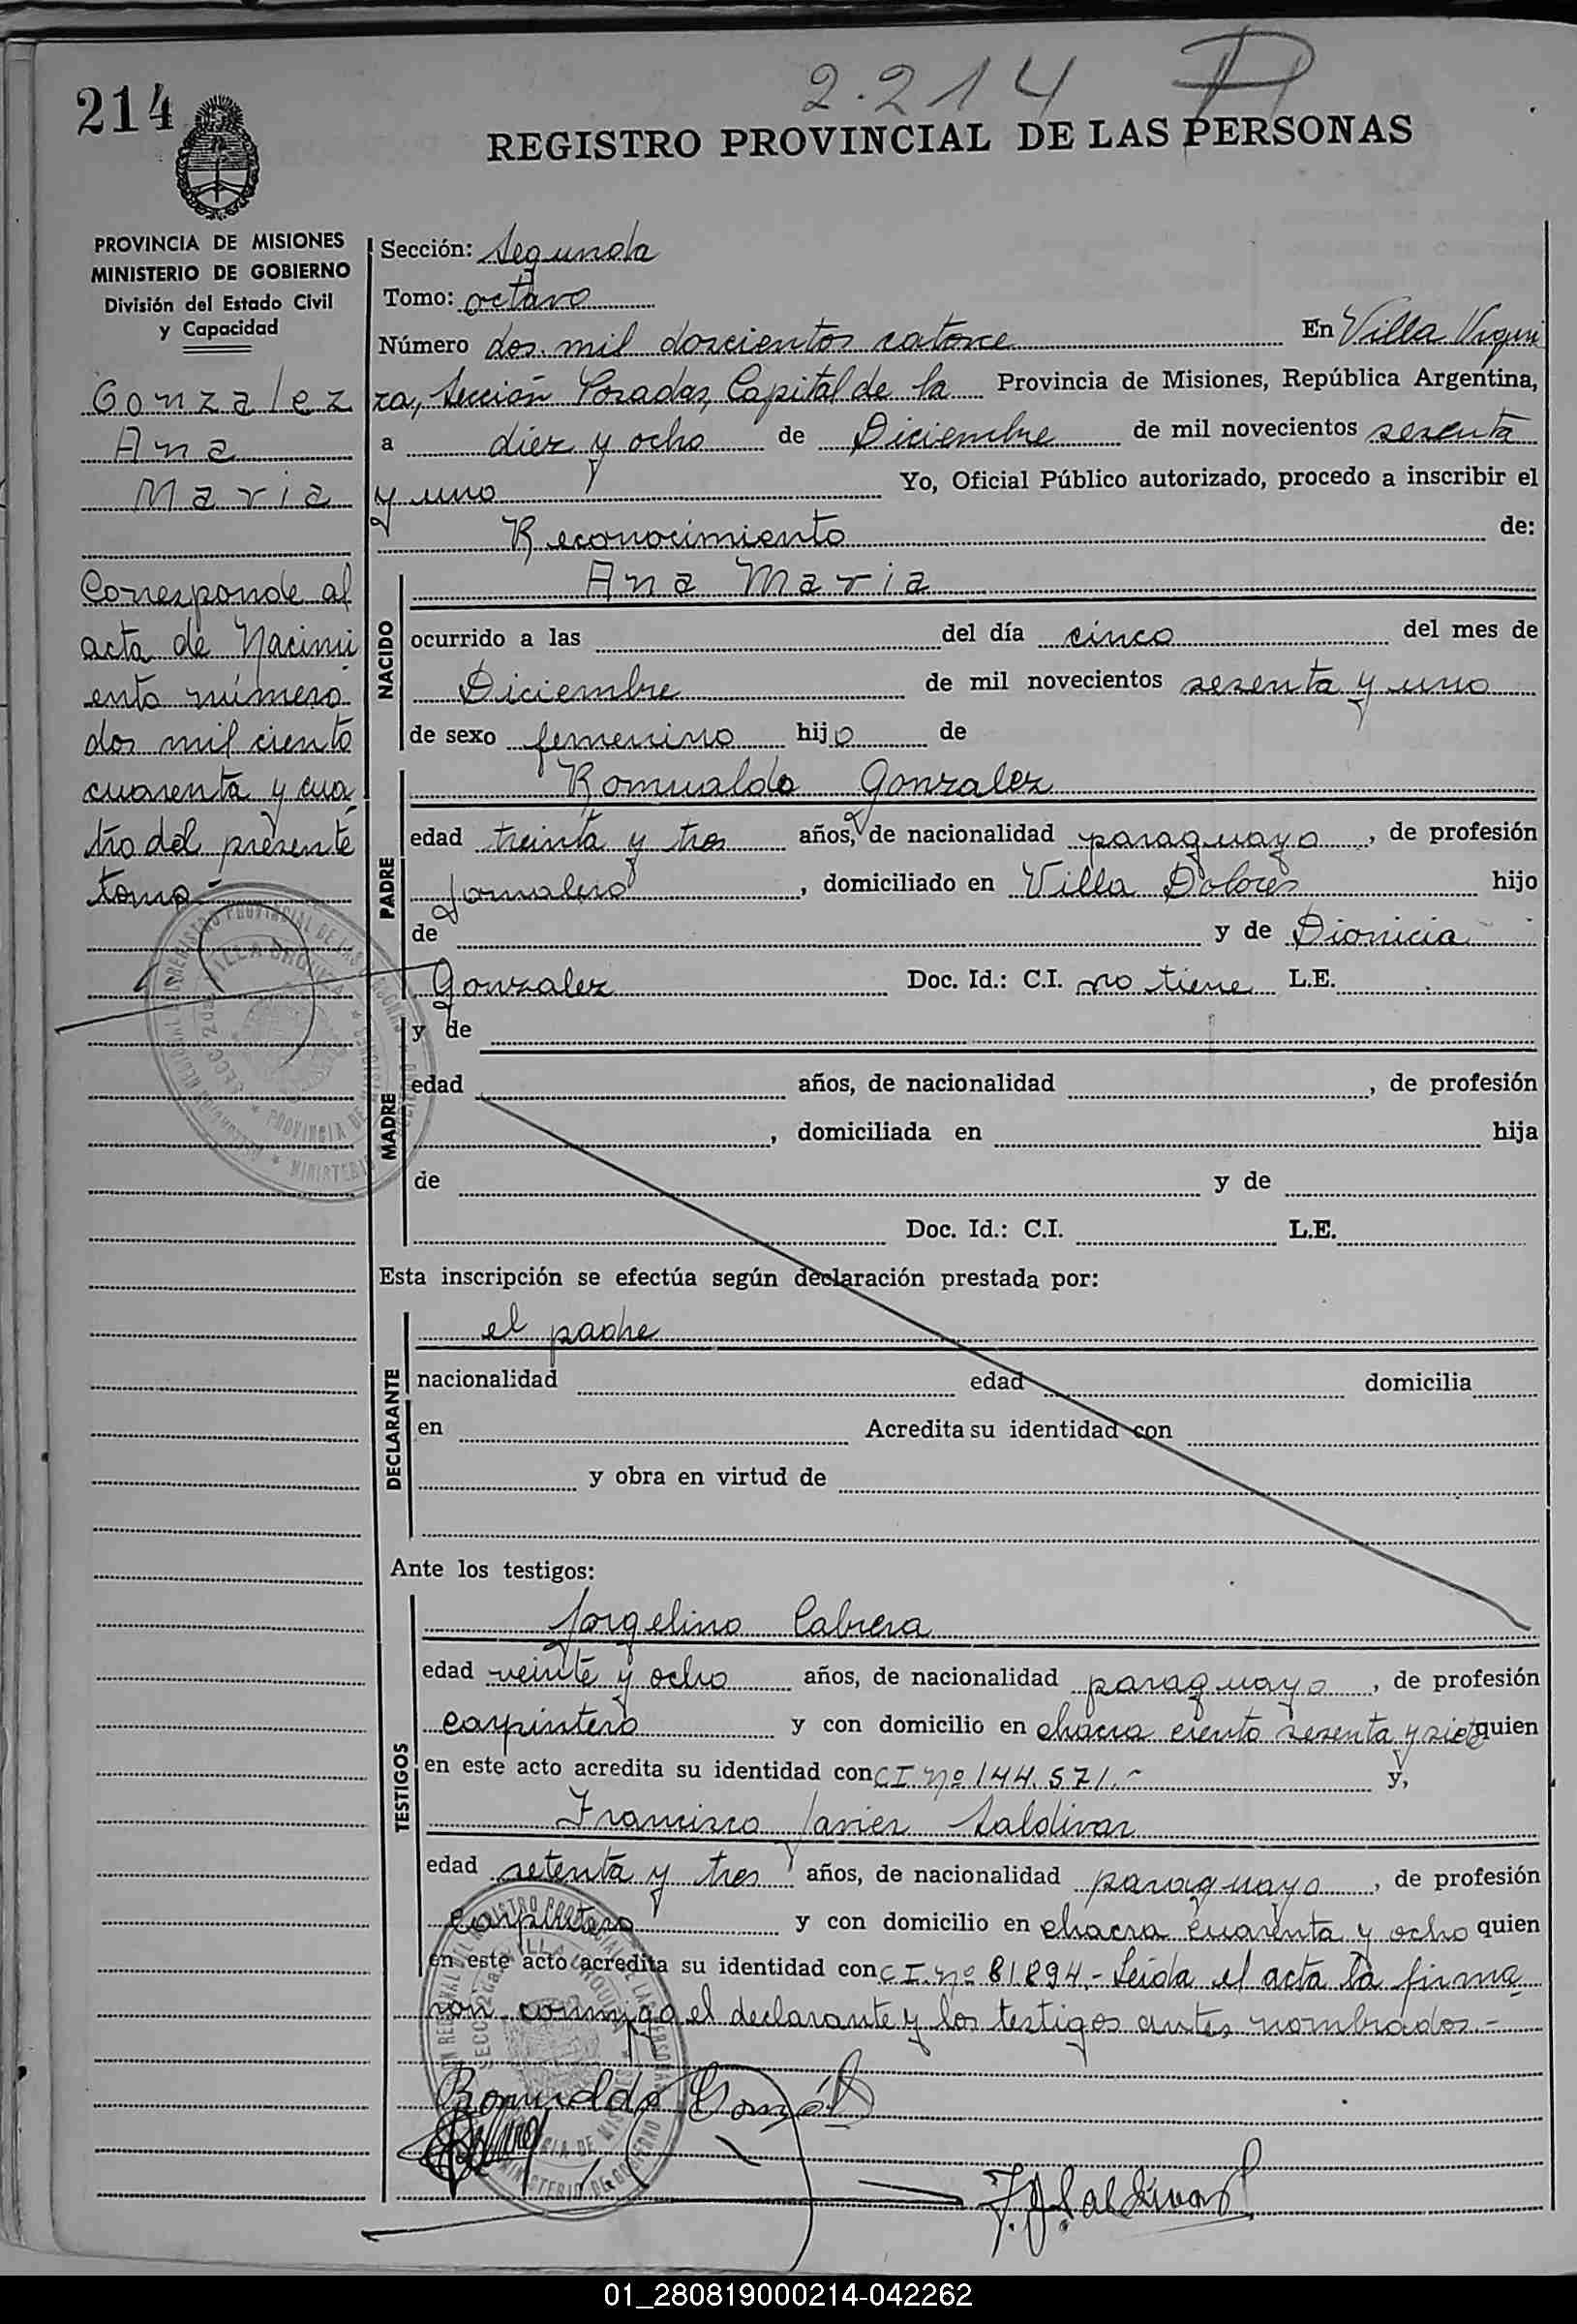 2.214 P
214
REGISTRO PROVINCIAL DE LAS PERSONAS
PROVINCIA DE MISIONES
MINISTERIO DE GOBIERNO
División del Estado Civil
y Capacidad
Gonzalez
Ana
Maria
Corresponde al
acta de Nacimi
ento número
dos mil ciento
cuarenta y cua
tro del presente
tomo-
Sección: Segunda
Tomo: octavo
Número dos mil doscientos catorce En Villa Urqui
za, Sección Posadas, Capital de la Provincia de Misiones, República Argentina,
a diez y ocho de Diciembre de mil novecientos sesenta
y uno Yo, Oficial Público autorizado, procedo a inscribir el
Reconocimiento de:
NACIDO
Ana Maria
ocurrido a las del día cinco del mes de
Diciembre de mil novecientos sesenta y uno
de sexo femenino hijo de
PADRE
Romualdo Gonzalez
edad treinta y tres años, de nacionalidad paraguayo, de profesión
jornalero, domiciliado en Villa Dolores hijo
de y de Dionicia
Gonzalez Doc. Id.: C.I. no tiene L.E.
MADRE
y de
edad años, de nacionalidad , de profesión
, domiciliada en hija
de y de
Doc. Id.: C.I. L.E.
Esta inscripción se efectúa según declaración prestada por:
DECLARANTE
el padre
nacionalidad edad domicilia
en Acredita su identidad con
y obra en virtud de
Ante los testigos:
TESTIGOS
Jorgelino Cabrera
edad veinte y ocho años, de nacionalidad paraguayo, de profesión
carpintero y con domicilio en chacra ciento sesenta y siete quien
en este acto acredita su identidad con C I Nº 144.571.- y,
Francisco Javier Saldivar
edad setenta y tres años, de nacionalidad paraguayo, de profesión
carpintero y con domicilio en chacra cuarenta y ocho quien
en este acto acredita su identidad con C I. nº 81.894.- Leida el acta la firma
ron conmigo el declarante y los testigos antes nombrados.-
Romualdo Gonzáles
F. J. Saldivar
01_280819000214-042262